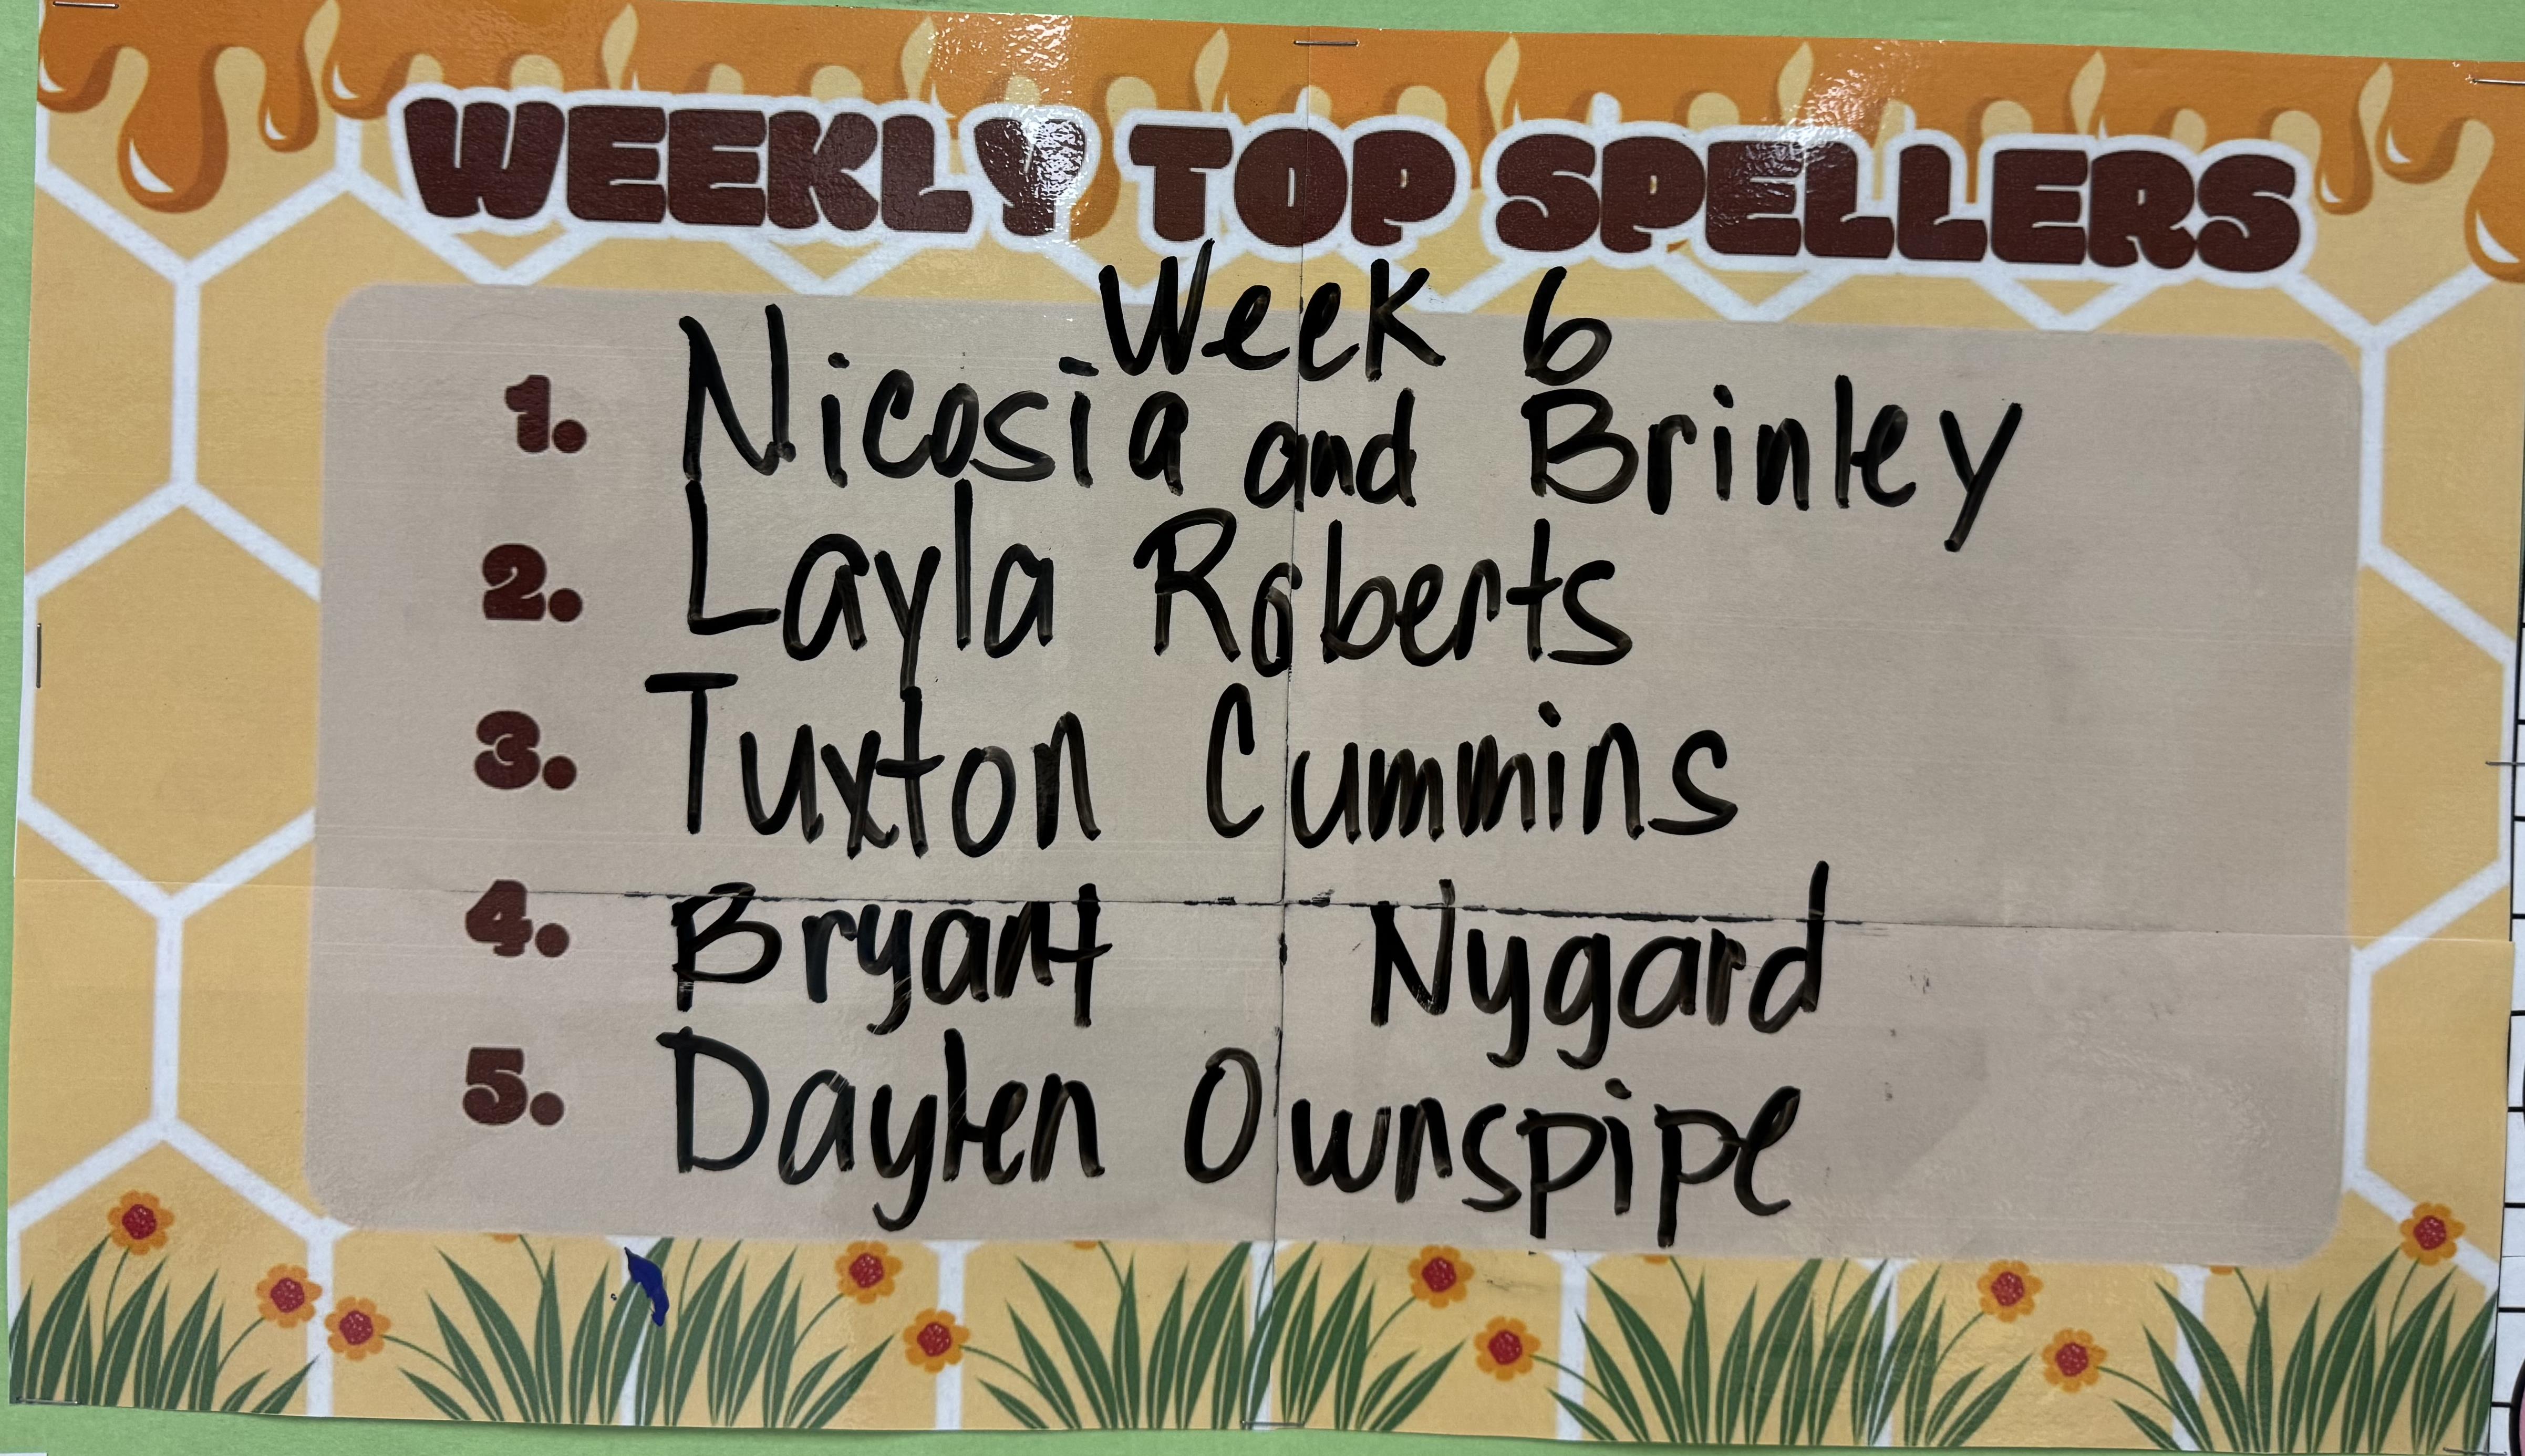 WEEKLY TOP SPELLERS
Week 6
1. Nicosia and Brinley
2. Layla Roberts
3. Tuxton Cummins
4. Bryant Nygard
5. Daylen Ownspipe